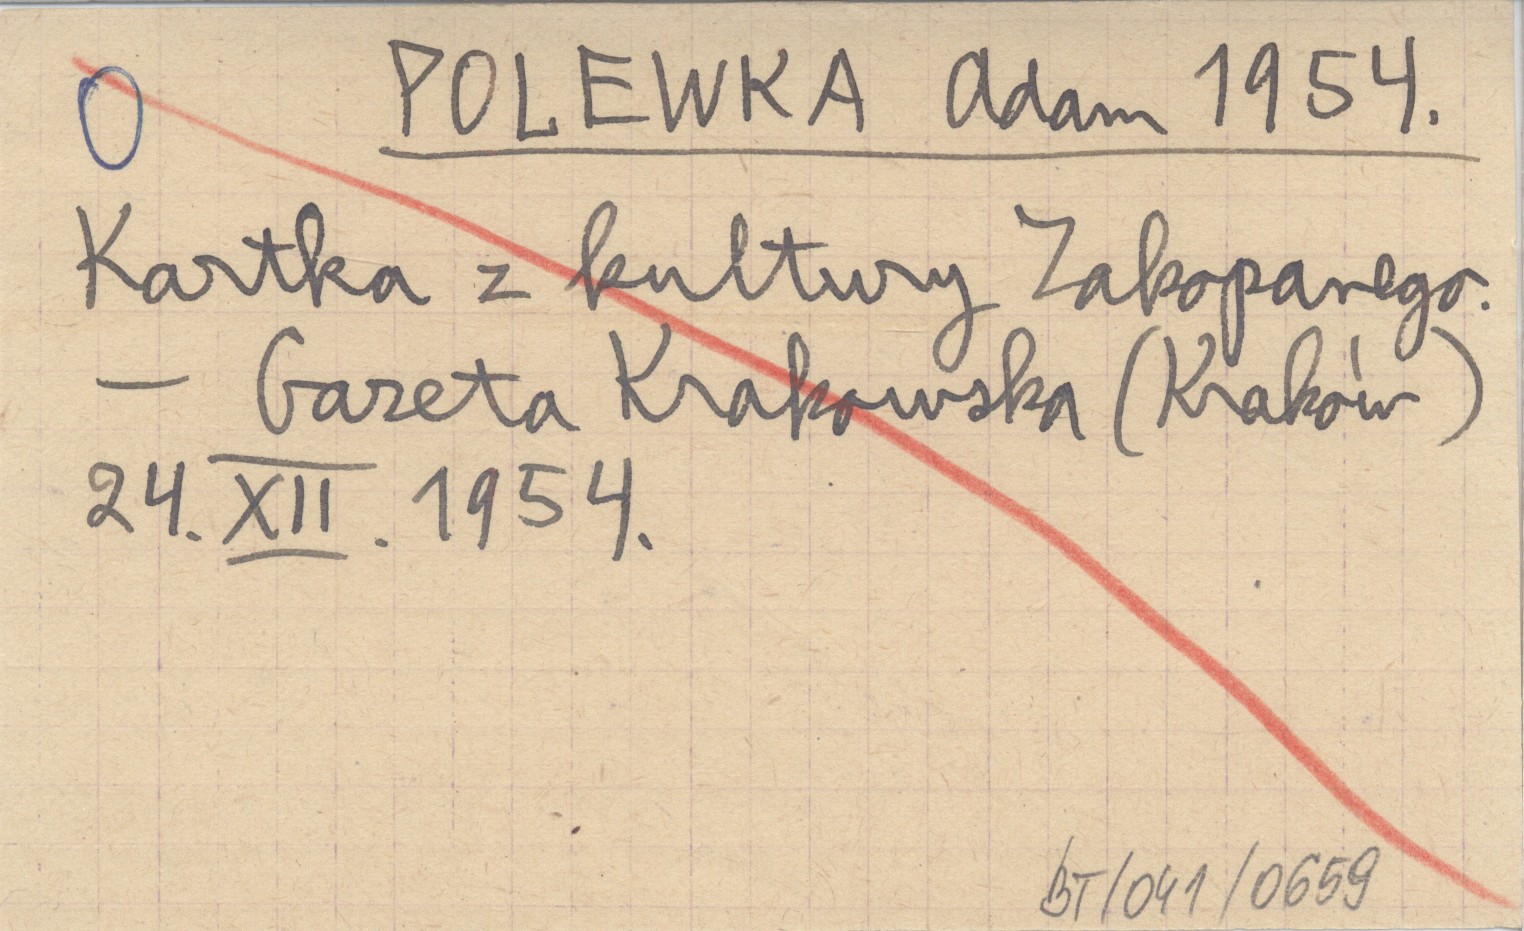 O POLEWKA Adam 1954.
Kartka z kultury Zakopanego.
— Gazeta Krakowska (Kraków)
24. XII. 1954.
BT/041/0659